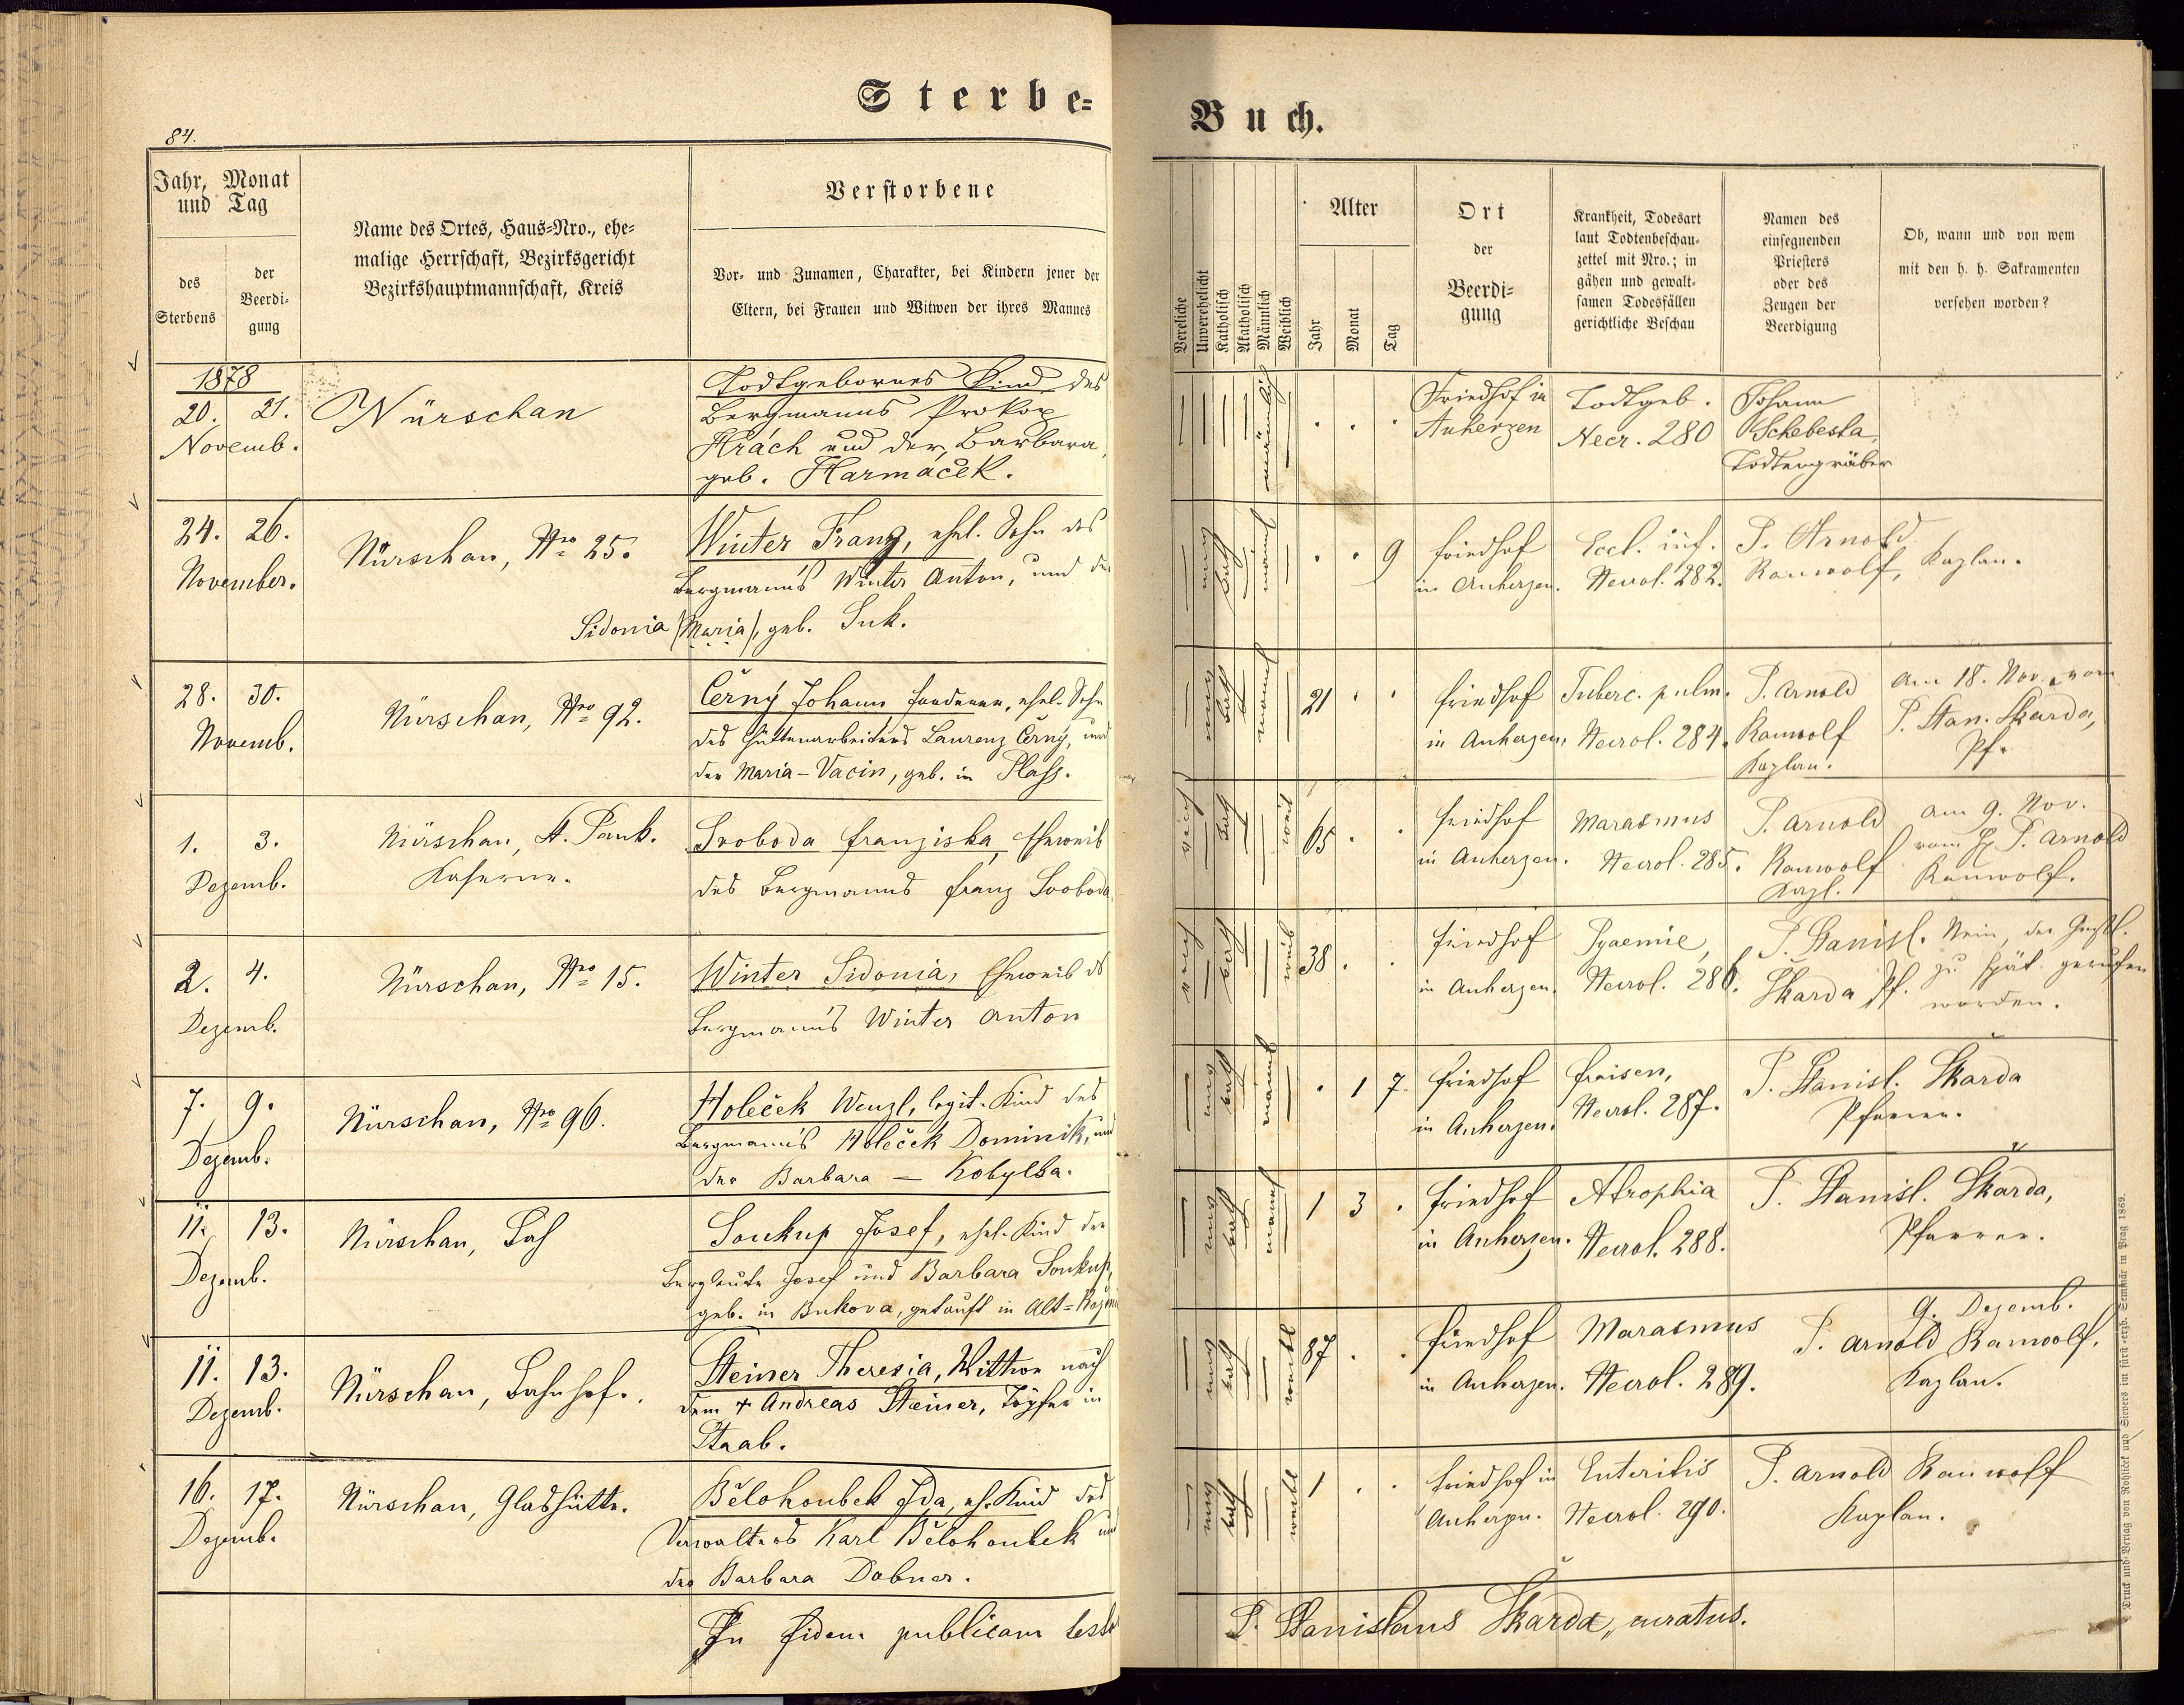 Sterbe-
Buch.
84.
Jahr, Monat
und Tag
des
Sterbens
der
Beerdi-
gung
Name des Ortes, Haus-Nro., ehe-
malige Herrschaft, Bezirksgericht
Bezirkshauptmannschaft, Kreis
Verstorbene
Vor- und Zunamen, Charakter, bei Kindern jener der
Eltern, bei Frauen und Witwen der ihres Mannes
Vereliche
Unverehelicht
Katholisch
Akatholisch
Männlich
Weiblich
Alter
Jahr
Monat
Tag
Ort
der
Beerdi-
gung
Krankheit, Todesart
laut Todtenbeschau-
zettel mit Nro.; in
gähen und gewalt-
samen Todesfällen
gerichtliche Beschau
Namen des
einsegnenden
Priesters
oder des
Zeugen der
Beerdigung
Ob, wann und von wem
mit den h. h. Sakramenten
versehen worden?
1878
20. 21.
Novemb.
Nürschan
Todtgebornes Kind des
Bergmanns Prokop
Hrách und der Barbara,
geb. Harmáček.
männlich
Friedhof in
Auherzen
Todtgeb.
Necr. 280
Johann
Schebesta,
Todtengräber
24. 26.
November.
Nürschan, Nro 25.
Winter Franz, ehel. Sohn des
Bergmann's Winter Anton, und der
Sidonia (Maria), geb. Suk.
9
Friedhof
in Auherzen.
Eccl. inf.
Necrol. 282.
P. Arnold
Rauwolf, Kaplan.
28. 30.
Novemb.
Nürschan, Nro 92.
Černý Johann, ehel. Sohn
des Hüttenarbeiters Laurenz Černý, und
der Maria - Vacin, geb. in Plass.
21
Friedhof
in Auherzen.
Tuberc. pulm.
Necrol. 284.
P. Arnold
Rauwolf
Kaplan.
am 18. Nov. vom
P. Stan. Skarda,
Pf.
1. 3.
Dezemb.
Nürschan, St. Pank.
Kaserne.
Svoboda Franziska, Eheweib
des Bergmanns Franz Svoboda
weib
65
Friedhof
in Auherzen.
Marasmus
Necrol. 285.
P. Arnold
Rauwolf
Kapl.
am 9. Nov.
vom H P. Arnold
Rauwolf.
2. 4.
Dezemb.
Nürschan, Nro 15.
Winter Sidonia, Eheweib des
Bergmann's Winter Anton
weib
38
Friedhof
in Auherzen.
Pyaemie,
Necrol. 286.
P. Stanisl.
Škarda Pf.
Nein, der Geistl.
zu spät gerufen
worden.
7. 9.
Dezemb.
Nürschan, Nro 96.
Holeček Wenzl, legit. Kind des
Bergmann's Holeček Dominik, und
der Barbara - Kobylka.
1 7.
Friedhof
in Auherzen.
Fraisen,
Necrol. 287.
P. Stanisl. Skarda
Pfarrer.
11. 13.
Dezemb.
Nürschan,
Soukup Josef, ehel. Kind der
Bergleute Josef und Barbara Soukup,
geb. in Bukova, getauft in Alt=
1 3
Friedhof
in Auherzen.
Atrophia
Necrol. 288.
P. Stanisl. Škarda,
Pfarrer.
11. 13.
Dezemb.
Nürschan, Bahnhof.
Steiner Theresia, Wittwe nach
dem + Andreas Steiner, Töpfer in
Staab.
87
Friedhof
in Auherzen.
Marasmus
Necrol. 289.
9. Dezemb.
P. Arnold Rauwolf,
Kaplan.
16. 17.
Dezemb.
Nürschan, Glashütte.
Bělohoubek Ida, eh. Kind des
Verwalters Karl Bělohoubek und
der Barbara Dobner.
weibl
1
Friedhof in
Auherzen.
Enteritis
Necrol. 290.
P. Arnold Rauwolf
Kaplan.
In fidem publicam teste
P. Stanislaus Škarda, curatus.
Druck und Verlag von Rohliček und Sievers im fürst.-erzb. Seminär in Prag 1869.